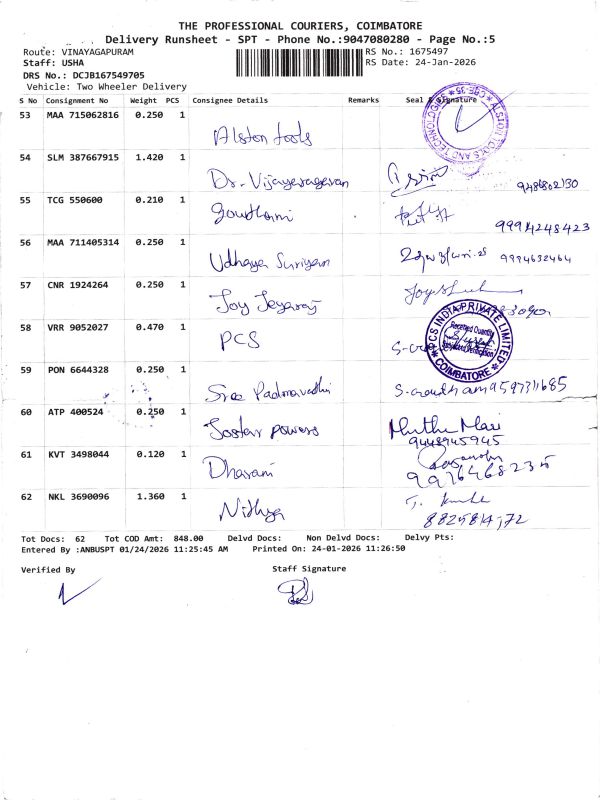 THE PROFESSIONAL COURIERS, COIMBATORE
Delivery Runsheet - SPT - Phone No.:9047080280 - Page No.:5
Route: VINAYAGAPURAM RS No.: 1675497
Staff: USHA RS Date: 24-Jan-2026
DRS No.: DCJB167549705
Vehicle: Two Wheeler Delivery
S No Consignment No Weight PCS Consignee Details Remarks Seal & Signature
53 MAA 715062816 0.250 1 Alston tools
54 SLM 387667915 1.420 1 Dr. Vijayaragavan
55 TCG 550600 0.210 1 Gowthami 9994248423
56 MAA 711405314 0.250 1 Udhaya Suriyan 9994632464
57 CNR 1924264 0.250 1 Joy Jeyaraj
58 VRR 9052027 0.470 1 PCS
PCS INDIA PRIVATE LIMITED
COIMBATORE
59 PON 6644328 0.250 1 Sree Padmavathi
60 ATP 400524 0.250 1 Jostar powers Muthu Mari
9448945945
61 KVT 3498044 0.120 1 Dharani
9976468235
62 NKL 3690096 1.360 1 Nithya
Tot Docs: 62 Tot COD Amt: 848.00 Delvd Docs: Non Delvd Docs: Delvy Pts:
Entered By :ANBUSPT 01/24/2026 11:25:45 AM Printed On: 24-01-2026 11:26:50
Verified By Staff Signature